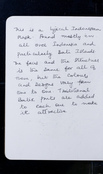 This is a typical Indonesian
Mask. Found mostly on
all over Indonesia and,
particularly Bali Islands
The faces and the structures
is the same for all of
them, but the Colours
and designs vary from
one to one. Traditional
Basic Paints are added
to each one to make
it attractive